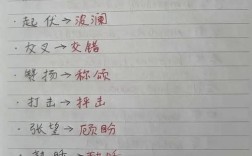 ·起伏→波澜
·交叉→交错
·赞扬→称颂
·打击→抨击
·张望→顾盼